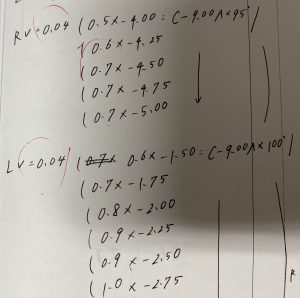 RV=0.04 (0.5×-4.00:C-9.00A×95°)
(0.6×-4.25
(0.7×-4.50
(0.7×-4.75
(0.7×-5.00
LV=0.04 (0.6×-1.50:C-9.00A×100°
(0.7×-1.75
(0.8×-2.00
(0.9×-2.25
(0.9×-2.50
(1.0×-2.75
R